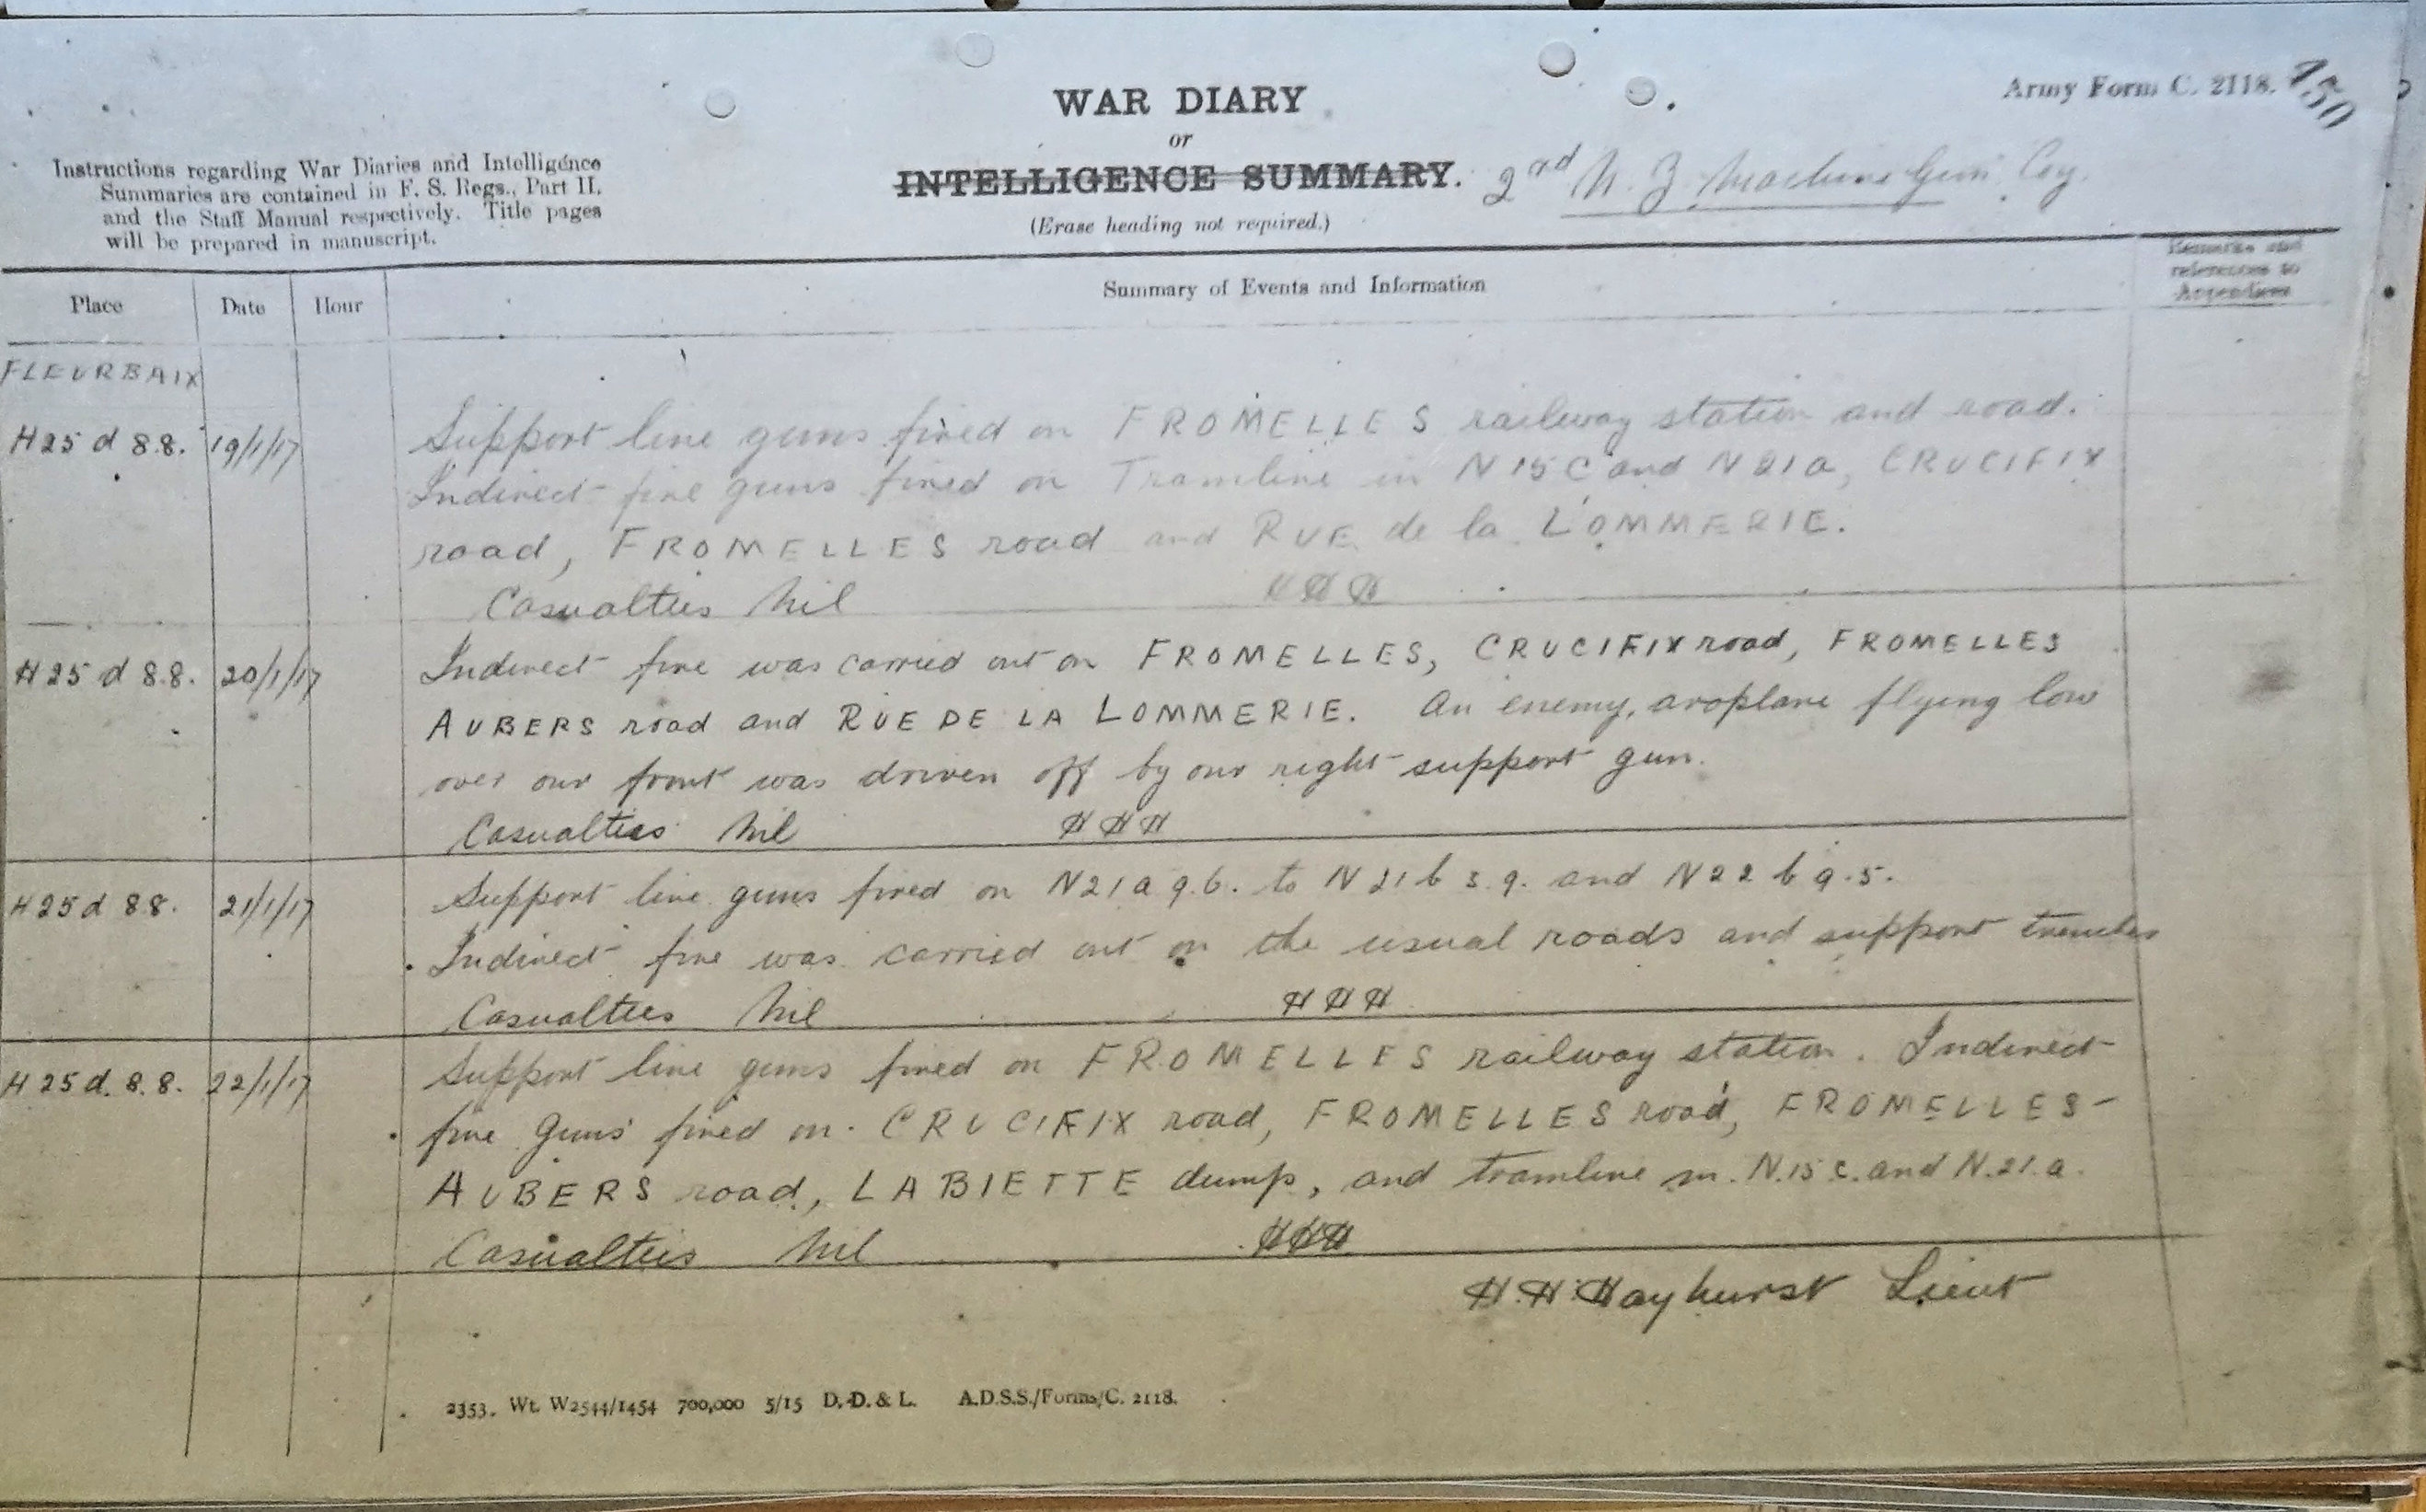 Army Form C. 2118.
450
WAR DIARY
or
INTELLIGENCE SUMMARY.
(Erase heading not required.)
2nd N. Z. Machine Gun Coy.
Instructions regarding War Diaries and Intelligence
Summaries are contained in F. S. Regs., Part II.
and the Staff Manual respectively. Title pages
will be prepared in manuscript.
Place Date Hour Summary of Events and Information Remarks and
references to
Appendices
FLEURBAIX
H25 d 8.8. 19/1/17 Support line guns fired on FROMELLES railway station and road.
Indirect fire guns fired on Tramline in N15C and N21a, CRUCIFIX
road, FROMELLES road and RUE de la LOMMERIE.
Casualties Nil HHH
H25 d 8.8. 20/1/17 Indirect fire was carried out on FROMELLES, CRUCIFIX road, FROMELLES
AUBERS road and RUE DE LA LOMMERIE. An enemy aroplane flying low
over our front was driven off by our right support gun.
Casualties Nil HHH
H25d 8.8. 21/1/17 Support line guns fired on N21a 9.6. to N21b 3.9. and N22b 9.5.
Indirect fire was carried out on the usual roads and support trenches
Casualties Nil HHH
H25d. 8.8. 22/1/17 Support line guns fired on FROMELLES railway station. Indirect
fire guns fired on CRUCIFIX road, FROMELLES road, FROMELLES-
AUBERS road, LA BIETTE dump, and tramline in N.15.c. and N.21.a.
Casualties Nil HHH
H.H. Hayhurst Lieut
2353. Wt. W2544/1454 700,000 5/15 D. D. & L. A.D.S.S./Forms/C. 2118.